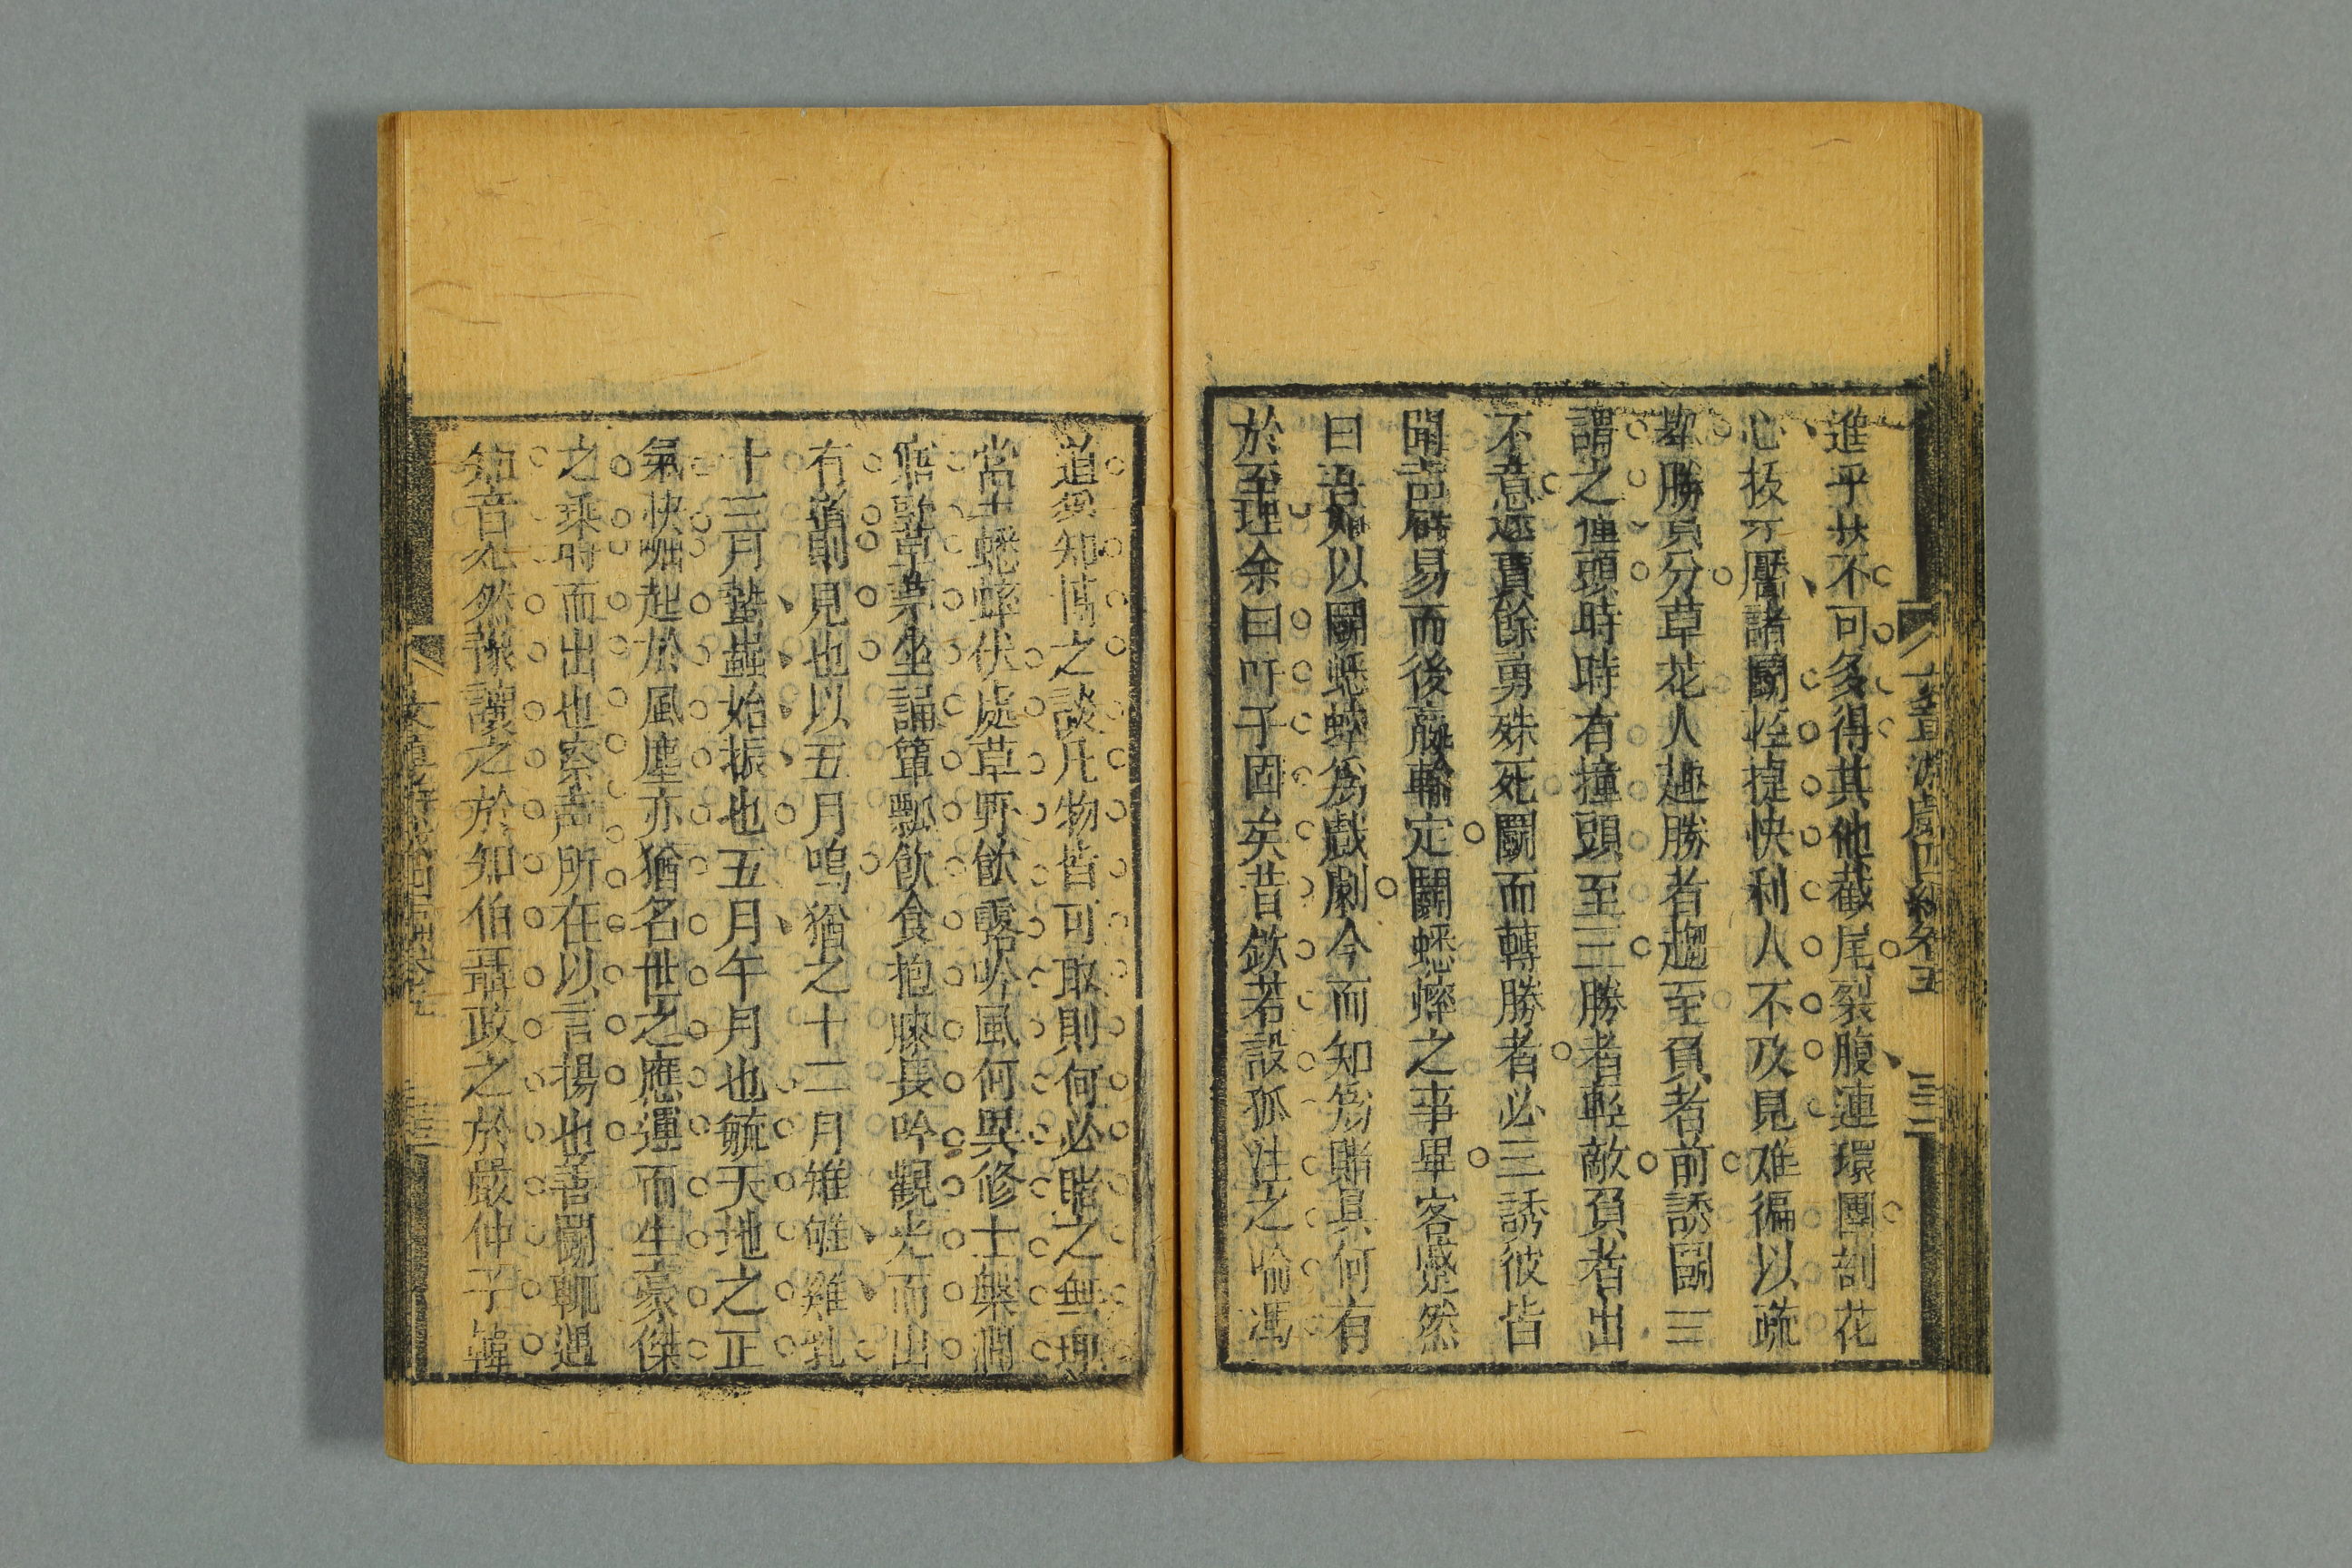 進乎狀不可多得其他截尾裂腹連環團剖花
心扳牙壓諸鬭輕捷快利人不及見难徧以疏
勝負分草花人趣勝者趨至負者前誘鬭三
謂之僮頭時時有撞頭至三勝者輕敵負者出
不意逐賈餘勇殊死鬭而轉勝者必三誘彼皆
聞声辟易而後嬴輸定鬭蟋蟀之事畢客蹙然
曰吾始以鬭蟋蟀爲戲劇今而知爲賭具何有
於至理余曰吁子固矣昔欽若設孤注之喻馮
道爲知情之談凡物皆可取則何必賭之無理
當其蟋蟀伏處草野飲露吟風何異修士槃澗
寤歌草茅坐誦簞瓢飲食抱膝長吟觀光而出
有道則見也以五月鳴猶之十二月雉雊雞乳
十三月蟄蟲始振也五月午月也毓天地之正
氣快崛起於風塵亦猶名世之應運而生豪傑
之乘時而出也察声所在以言揚也善鬭輒遇
知音不然豫讓之於知伯聶政之於嚴仲子韓